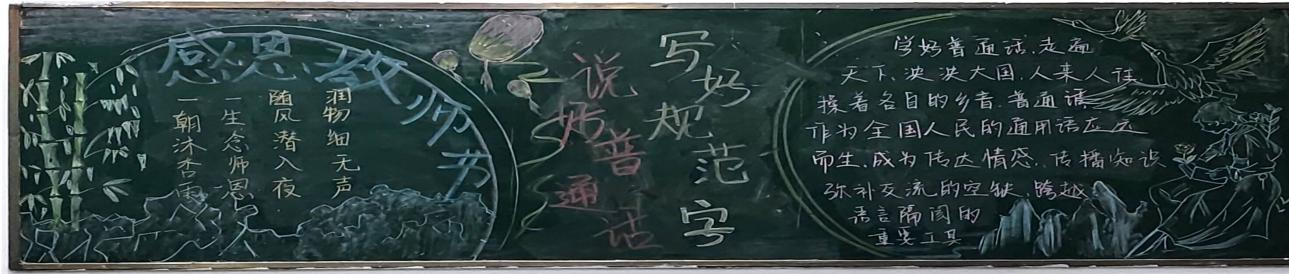 感恩教师节
润物细无声
随风潜入夜
一生念师恩
一朝沐杏雨
说好普通话
写好规范字
学好普通话,走遍
天下,泱泱大国,人来人往,
操着各自的乡音,普通话
作为全国人民的通用语应运
而生,成为传达情感,传播知识
弥补交流的空缺,跨越
语言隔阂的
重要工具